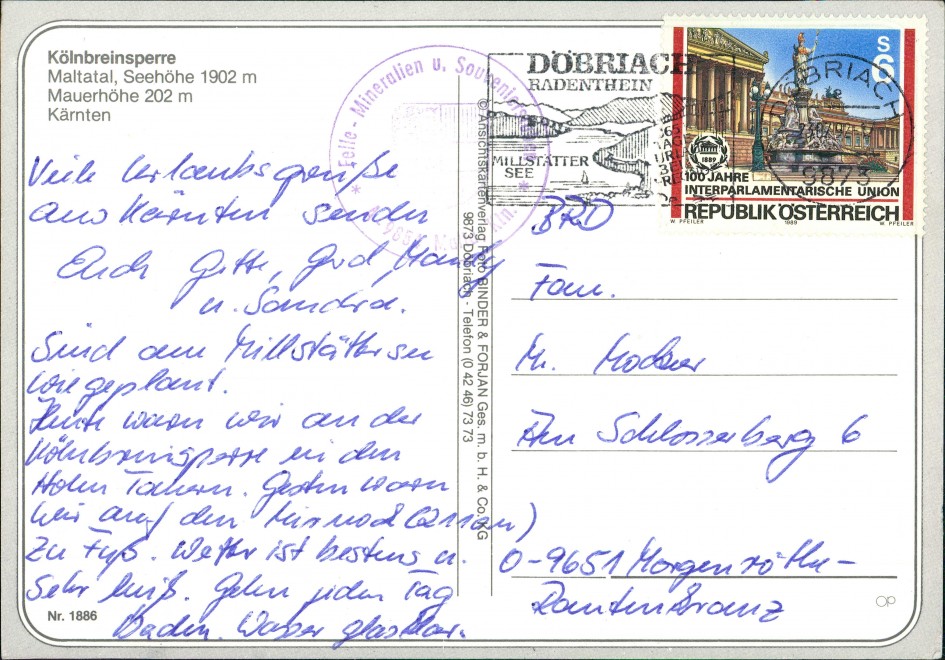 Kölnbreinsperre
Maltatal, Seehöhe 1902 m
Mauerhöhe 202 m
Kärnten
Viele Urlaubsgrüße
aus Kärnten senden
Euch Gitte, Gerd, Mandy
u. Sandra.
Sind am Millstätter see
wie geplant.
Heute waren wir an der
Kölnbreinsperre in den
Hohen Tauern. Gestern waren
wir auf den Mirnock (2110m)
zu Fuß. Wetter ist bestens u.
sehr heiß. Gehn jeden Tag
Baden. Wasser glasklar.
Nr. 1886
Felle - Mineralien u. Souvenir
DÖBRIACH
RADENTHEIN
MILLSTÄTTER
SEE
© Ansichtskartenverlag Foto BINDER & FORJAN Ges. m. b. H. & Co. KG
9873 Döbriach - Telefon (0 42 46) 73 73
S 6
DÖBRIACH
9873
1889
100 JAHRE
INTERPARLAMENTARISCHE UNION
REPUBLIK ÖSTERREICH
W. PFEILER 1989 W. PFEILER
BRD
Fam.
M.
Am Schlosserberg 6
O-9651 Morgenröthe-
Rautenkranz
OP